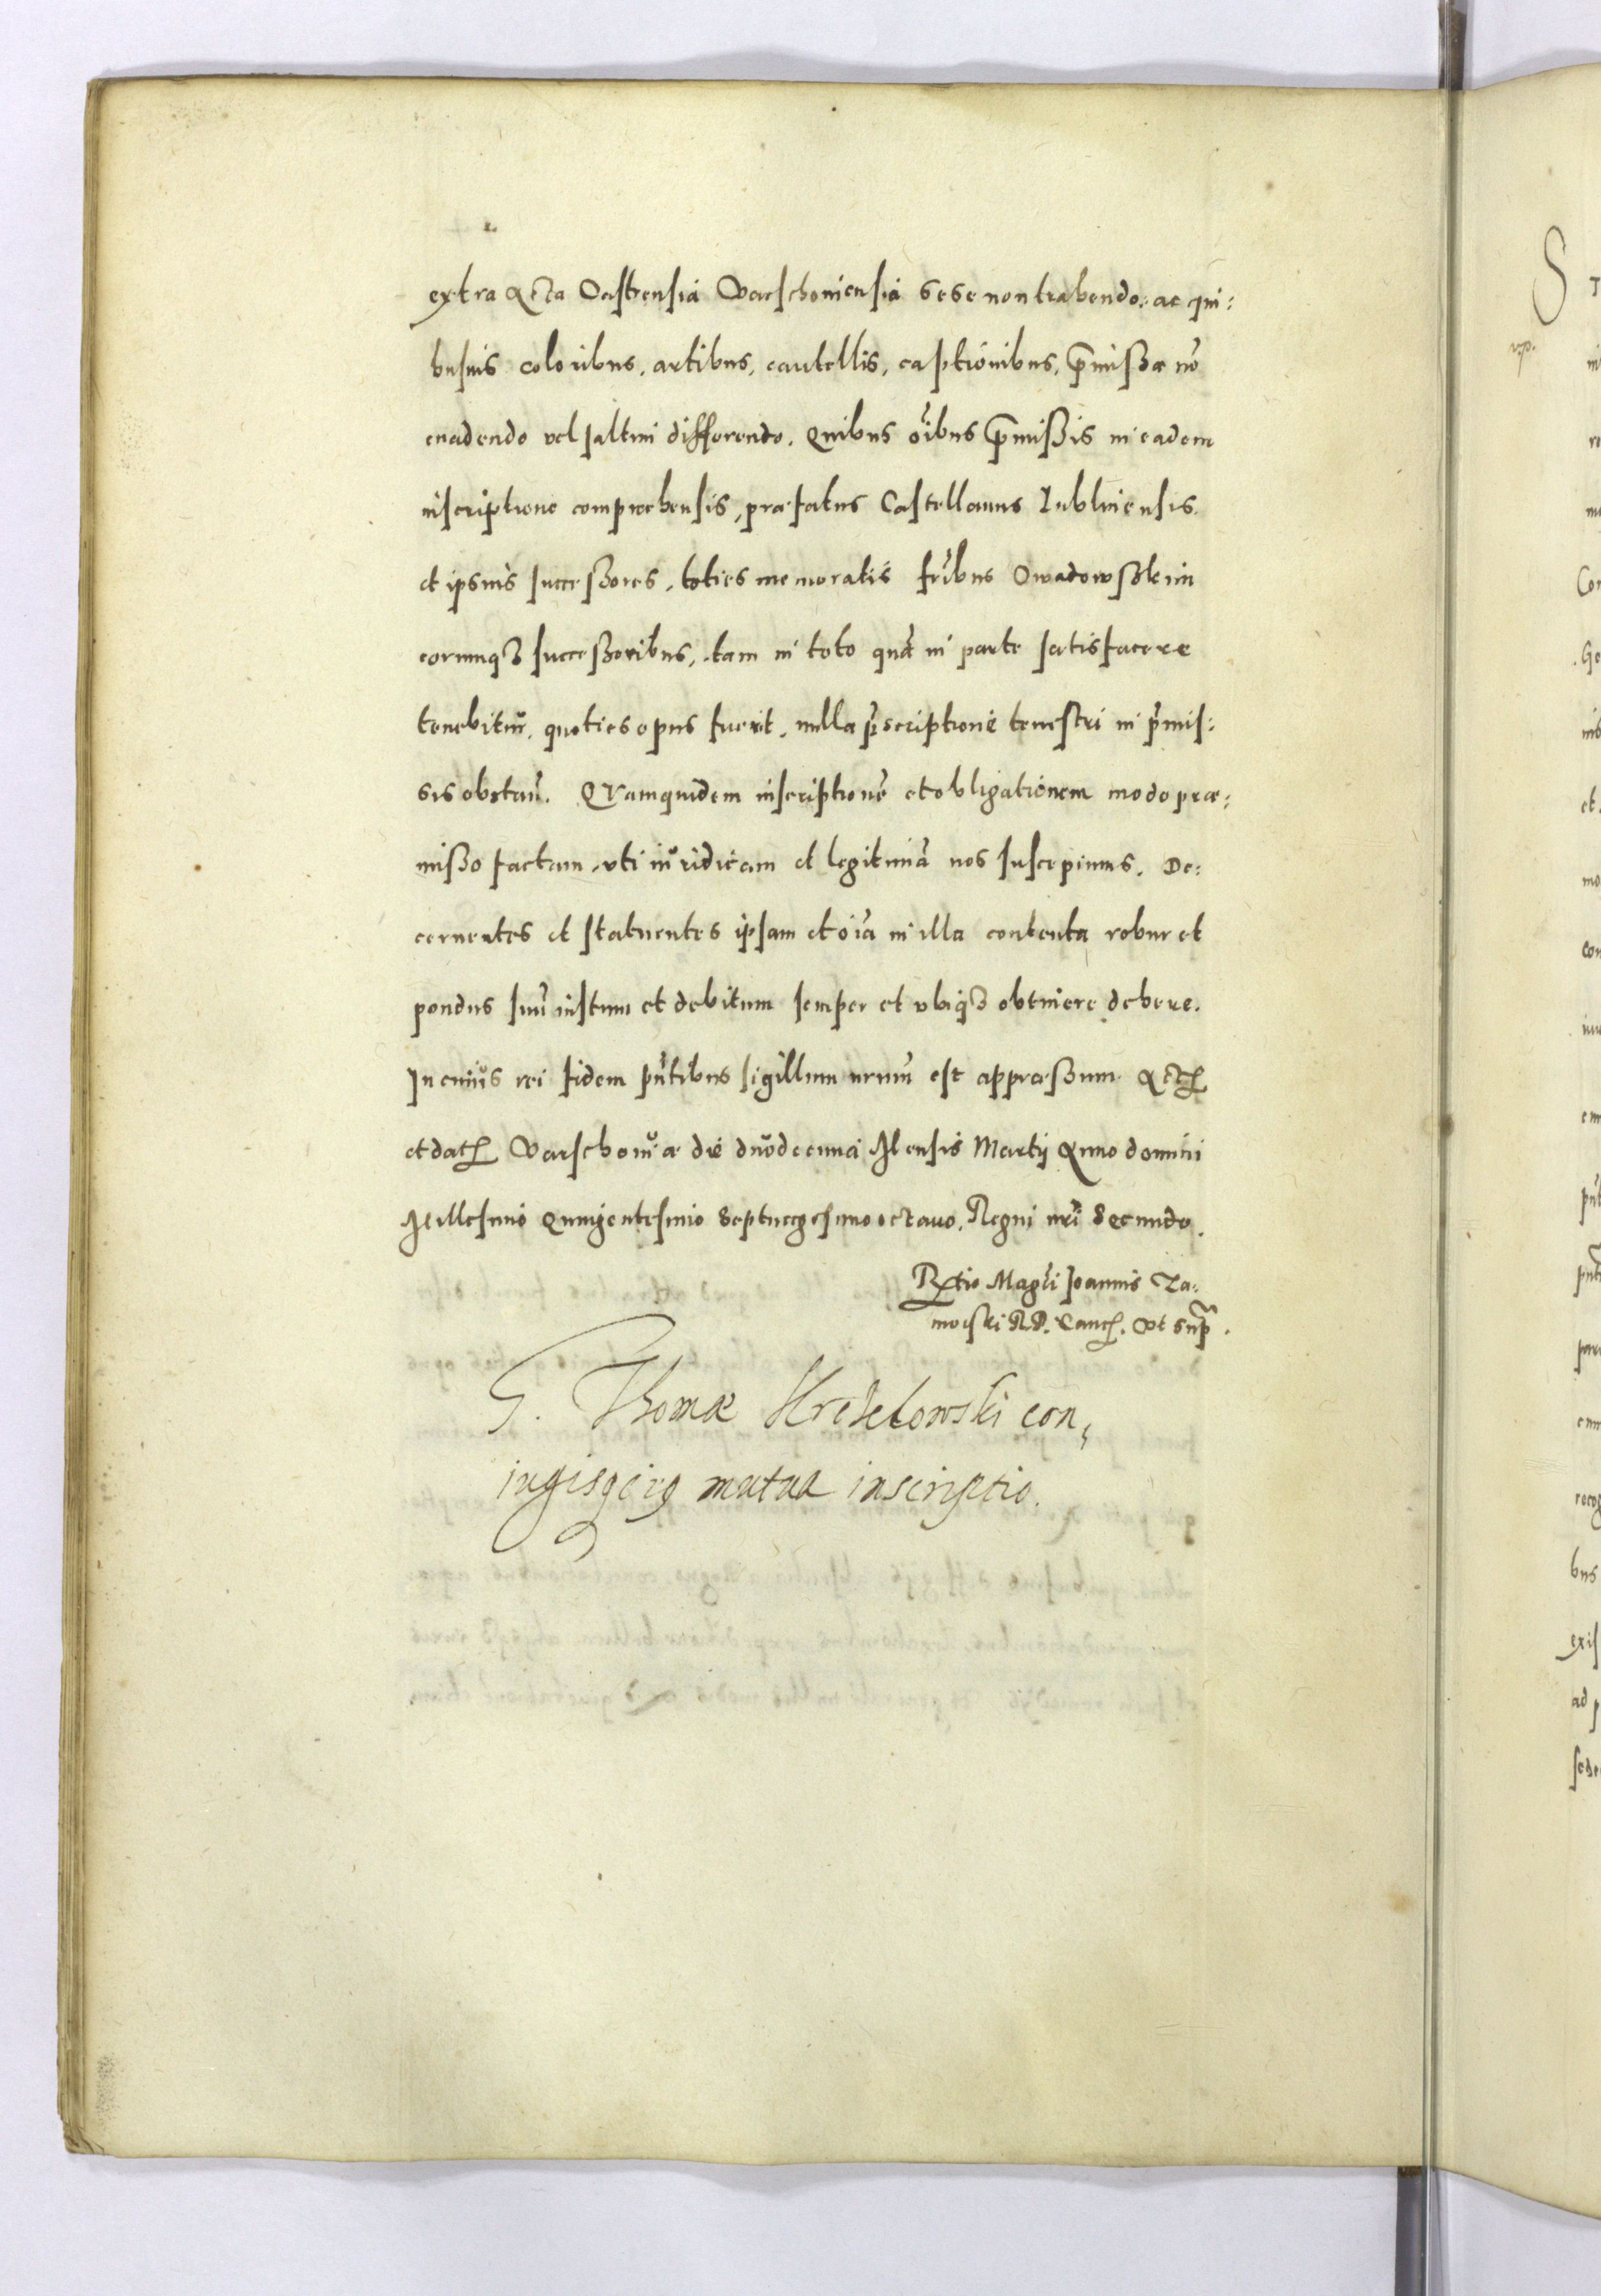 extra Acta Castrensia Varschoniensia sese non trahendo. ac qui:
busuis coloribus, artibus, cautellis, captionibus, pmissa nō
euadendo vel saltim differendo. Quibus oībus pmissis in eadem
inscriptione comprehensis, præfatus Castellanus Lublinensis
et ipsius successores, toties memoratis frībus Owadowszkim
eorumqȝ successoribus, tam in toto quā in parte satisfacere
tenebitur, quoties opus fuerit, nulla pscriptione terrestri in pmis:
sis obstan. Quamquidem inscriptionē et obligationem modo præ:
misso factam, vti iuridicam et legitimā nos suscepimus. De:
cernentes et statuentes ipsam et oīa in illa contenta robur et
pondus suū iustum et debitum semper et vbiqȝ obtinere debere.
In cuius rei fidem pntibus sigillum nrum est appræssum. Act
et dat Varschouiæ die duodecima Mensis Martij Anno domini
Millesimo Quingentesimo Septuagesimo octauo. Regni nri Secundo.
Rtio Magci Joannis Za:
moiski R.P. Canc. Vt sup.
G. Thomæ
iugisqeius mutua inscriptio.